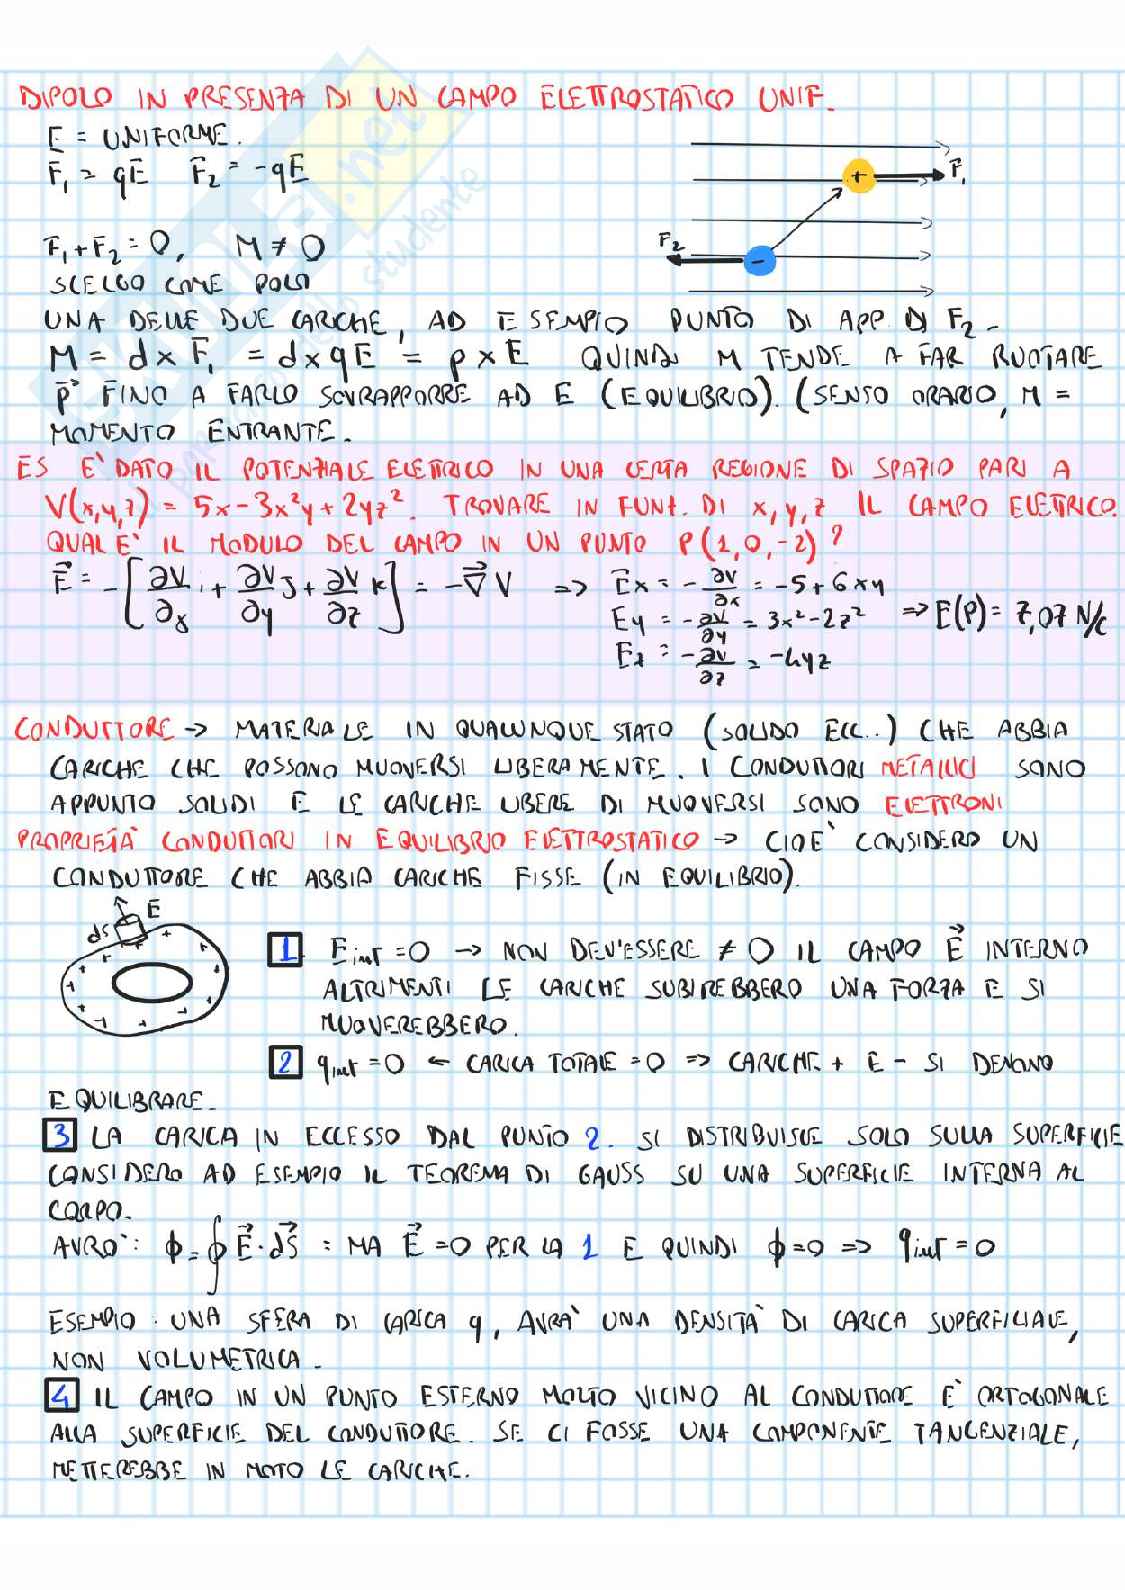 DIPOLO IN PRESENZA DI UN CAMPO ELETTROSTATICO UNIF.
E = UNIFORME.
F₁ = qE F₂ = -qE
F₁
F₁+F₂ = 0, M ≠ 0
F₂
SCELGO COME POLO
UNA DELLE DUE CARICHE, AD ESEMPIO PUNTO DI APP. DI F₂.
M = d x F₁ = d x qE = p x E QUINDI M TENDE A FAR RUOTARE
p FINO A FARLO SOVRAPPORRE AD E (EQUILIBRIO). (SENSO ORARIO, M =
MOMENTO ENTRANTE.
ES E' DATO IL POTENZIALE ELETTRICO IN UNA CERTA REGIONE DI SPAZIO PARI A
V(x,y,z) = 5x-3x²y+2yz². TROVARE IN FUNZ. DI x,y,z IL CAMPO ELETTRICO.
QUAL E' IL MODULO DEL CAMPO IN UN PUNTO P(1,0,-2)?
E = -[∂V/∂x i + ∂V/∂y J + ∂V/∂z k] = -∇V => Ex = -∂V/∂x = -5+6xy
Ey = -∂V/∂y = 3x²-2z² => E(P) = 7,07 N/C
Ez = -∂V/∂z = -4yz
CONDUTTORE → MATERIALE IN QUALUNQUE STATO (SOLIDO ECC..) CHE ABBIA
CARICHE CHE POSSONO MUOVERSI LIBERAMENTE. I CONDUTTORI METALLICI SONO
APPUNTO SOLIDI E LE CARICHE LIBERE DI MUOVERSI SONO ELETTRONI
PROPRIETÀ CONDUTTORI IN EQUILIBRIO ELETTROSTATICO → CIOE' CONSIDERO UN
CONDUTTORE CHE ABBIA CARICHE FISSE (IN EQUILIBRIO).
E
dS
1 Eint = 0 → NON DEV'ESSERE ≠ 0 IL CAMPO E INTERNO
ALTRIMENTI LE CARICHE SUBIREBBERO UNA FORZA E SI
MUOVEREBBERO.
2 qint = 0 ← CARICA TOTALE = 0 => CARICHE + E - SI DEVONO
EQUILIBRARE.
3 LA CARICA IN ECCESSO DAL PUNTO 2. SI DISTRIBUISCE SOLO SULLA SUPERFICIE
CONSIDERO AD ESEMPIO IL TEOREMA DI GAUSS SU UNA SUPERFICIE INTERNA AL
CORPO.
AVRO': ϕ = ∮ E · dS = MA E = 0 PER LA 1 E QUINDI ϕ = 0 => qint = 0
ESEMPIO: UNA SFERA DI CARICA q, AVRA' UNA DENSITA' DI CARICA SUPERFICIALE,
NON VOLUMETRICA.
4 IL CAMPO IN UN PUNTO ESTERNO MOLTO VICINO AL CONDUTTORE E' ORTOGONALE
ALLA SUPERFICIE DEL CONDUTTORE. SE CI FOSSE UNA COMPONENTE TANGENZIALE,
METTEREBBE IN MOTO LE CARICHE.